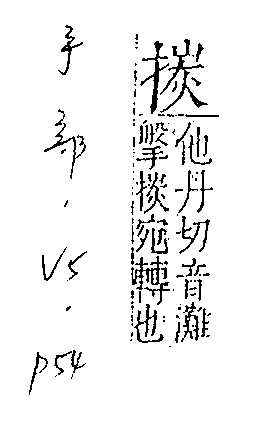 掞
他丹切音灘
搫掞宛轉也
手部.V5.P54